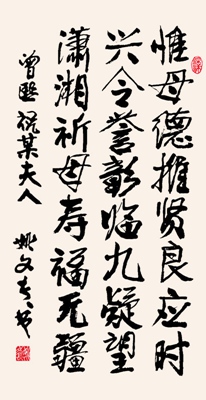 惟母德推贤良应时
兴令誉彰临九凝望
潇湘祈母寿福无疆
曾熙祝某夫人
姚文奎书